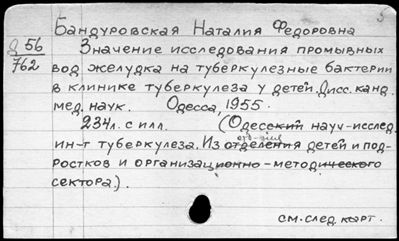 5
Бандуровская Наталия Федоровна
Д 56
762
Значение исследования промывных
вод желудка на туберкулезные бактерии
в клинике туберкулеза у детей. Дисс. канд.
мед. наук. Одесса, 1955.
234л. с илл. (Одесский науч-исслед.
ин-т туберкулеза. Из отделения детей и под-
ростков и организационно-методического
сектора).
см. след. карт.